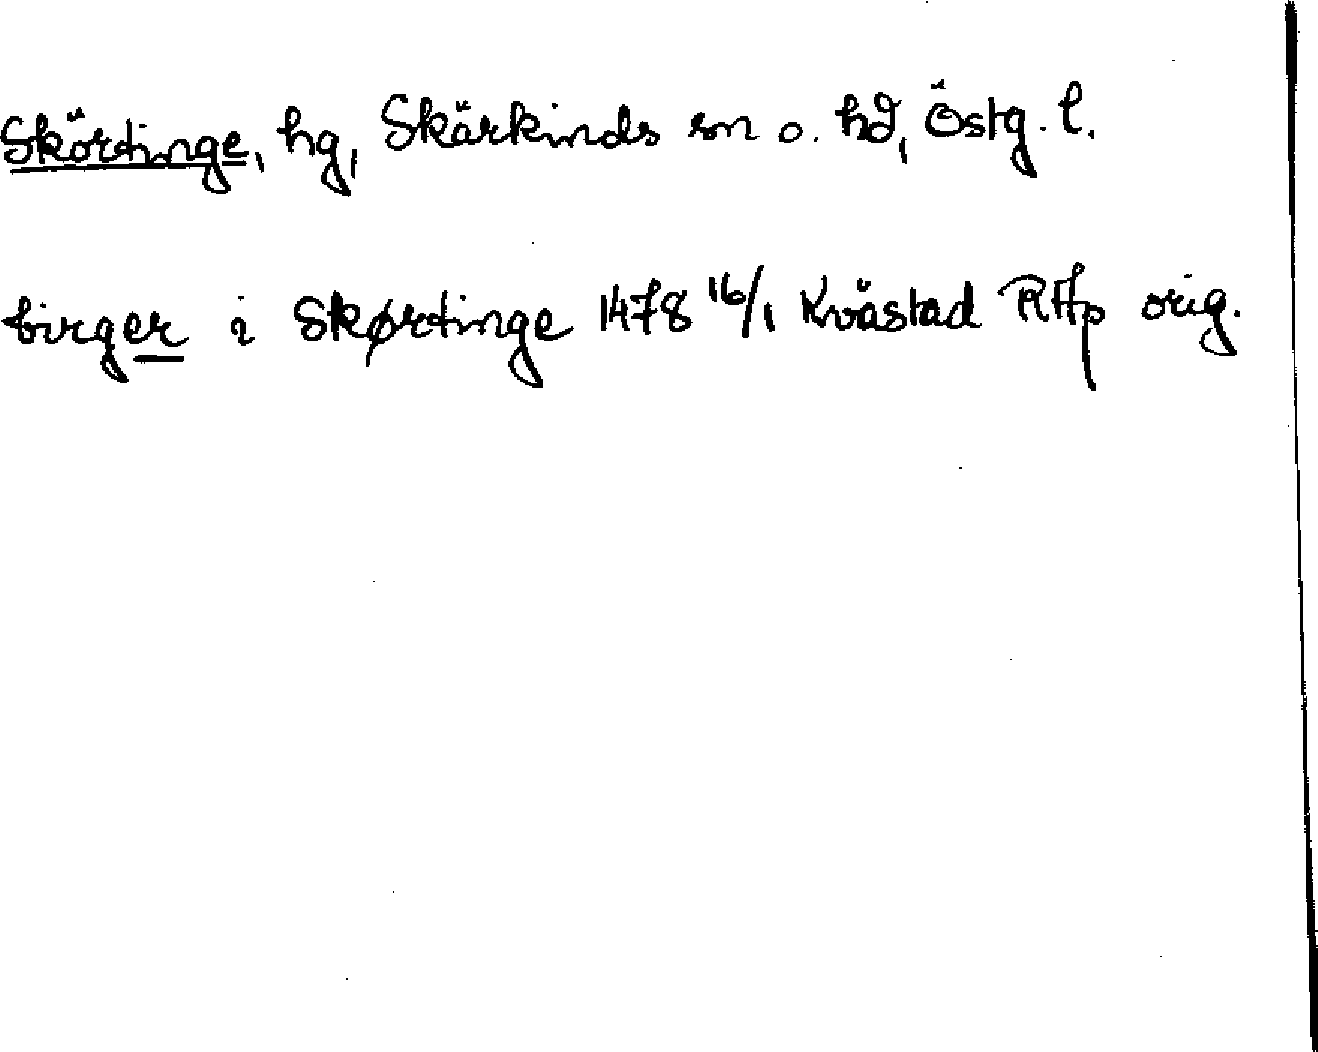 Skörtinge, hg, Skärkinds sn o. hd, Östg. l.
birger i Skørtinge 1478 16/1 Kvästad RAp orig.